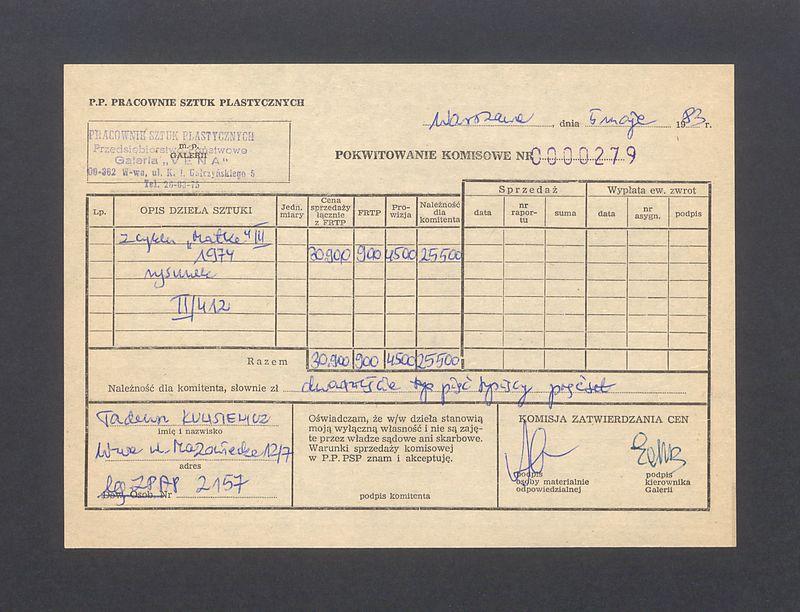 P.P. PRACOWNIE SZTUK PLASTYCZNYCH
Warszawa, dnia 5 maja 1983 r.
PRACOWNIE SZTUK PLASTYCZNYCH
Przedsiębiorstwo Państwowe
m. p.
GALERII
Galeria „VENA"
00-362 W-wa, ul. K. I. Gałczyńskiego 5
Tel. 26-03-75
POKWITOWANIE KOMISOWE NR 0000279
Lp. OPIS DZIEŁA SZTUKI Jedn. miary Cena sprzedaży łącznie z FRTP FRTP Prowizja Należność dla komitenta Sprzedaż Wypłata ew. zwrot
data nr raportu suma data nr asygn. podpis
z cyklu „Matka" III
1974 30.900 900 4500 25500
rysunek
II/412
Razem 30.900 900 4500 25500
Należność dla komitenta, słownie zł dwadzieścia pięć tysięcy pięćset
Tadeusz KULISIEWICZ
imię i nazwisko
W-wa ul. Mazowiecka 12/7
adres
leg ZPAP 2157
Dow. Osob. Nr
Oświadczam, że w/w dzieła stanowią
moją wyłączną własność i nie są zaję-
te przez władze sądowe ani skarbowe.
Warunki sprzedaży komisowej
w P.P. PSP znam i akceptuję.
podpis komitenta
KOMISJA ZATWIERDZANIA CEN
podpis
osoby materialnie
odpowiedzialnej
podpis
kierownika
Galerii